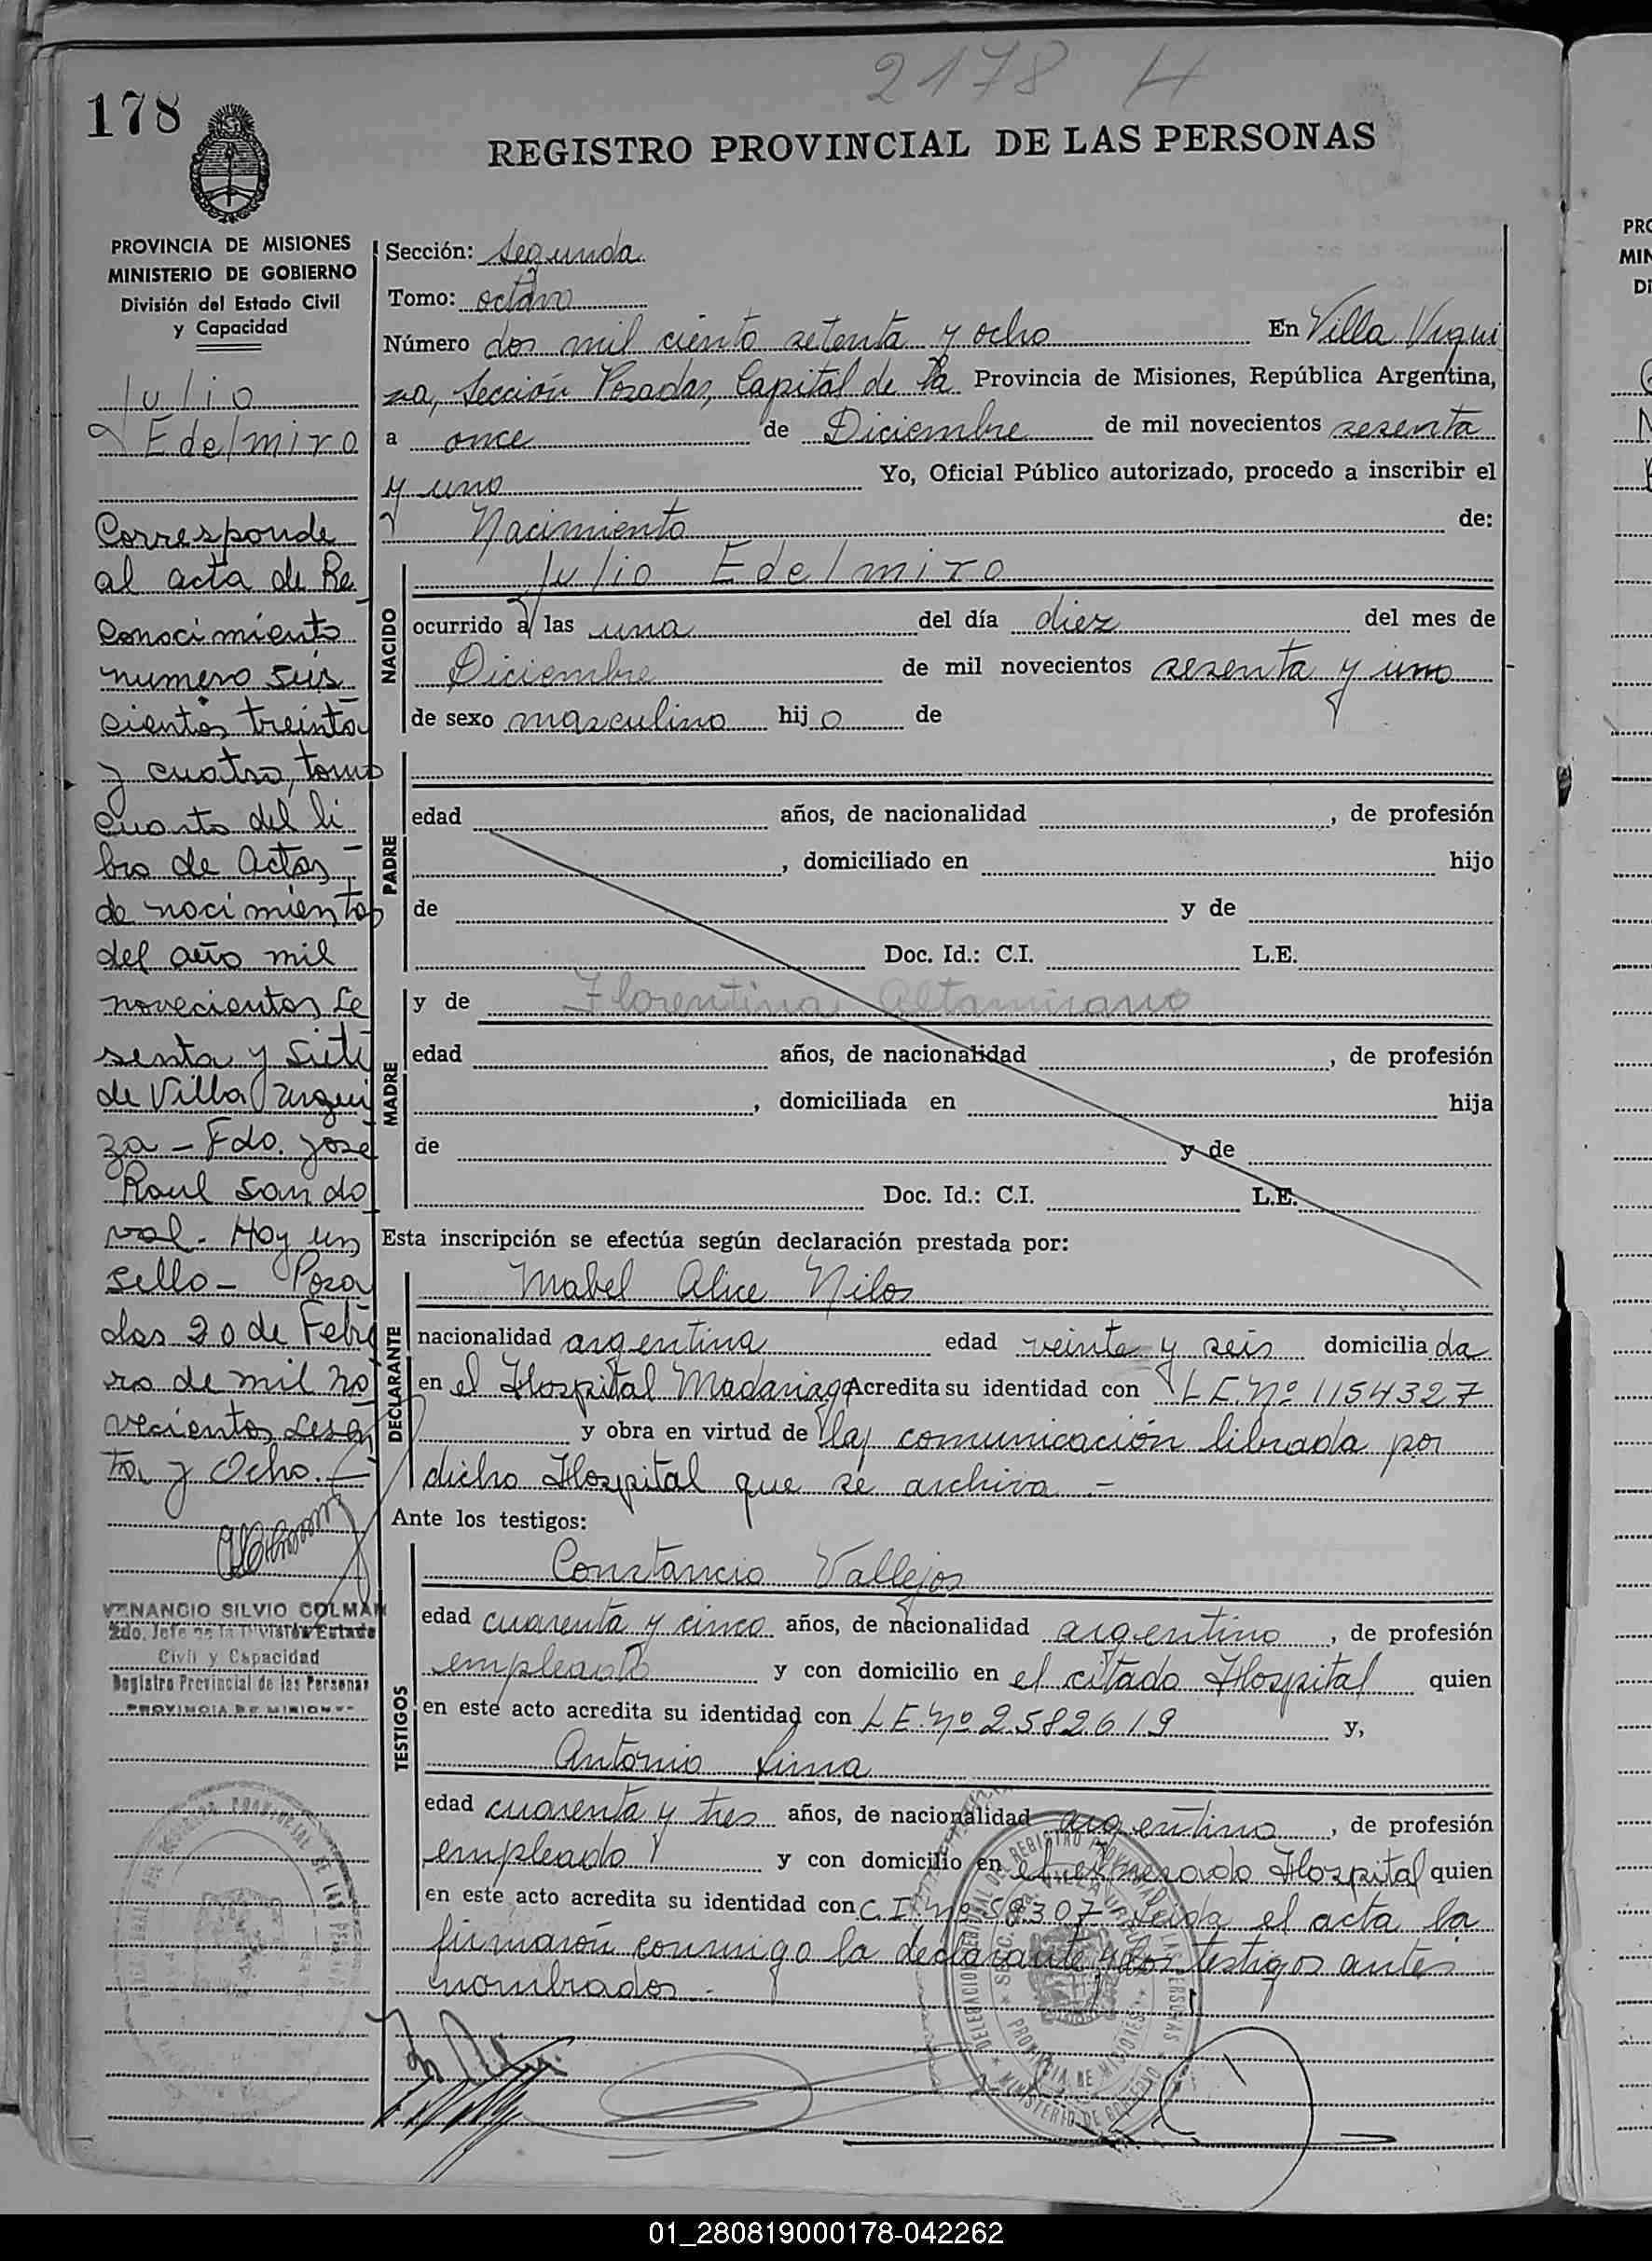 2178 H
178
REGISTRO PROVINCIAL DE LAS PERSONAS
PROVINCIA DE MISIONES
MINISTERIO DE GOBIERNO
División del Estado Civil
y Capacidad
Julio
Edelmiro
Corresponde
al acta de Re
conocimiento
numero seis
cientos treinta
y cuatro, tomo
cuarto del li
bro de Actas
de nacimientos
del año mil
novecientos se
senta y siete
de Villa Urqui
za - Fdo. José
Raul Sando
val. Hay un
sello - Posa
das 20 de Febre
ro de mil no
vecientos sesen
ta y Ocho.
VENANCIO SILVIO COLMAN
2do. Jefe de la División Estado
Civil y Capacidad
Registro Provincial de las Personas
PROVINCIA DE MISIONES
Sección: Segunda
Tomo: octavo
Número dos mil ciento setenta y ocho En Villa Urqui
za, Sección Posadas, Capital de la Provincia de Misiones, República Argentina,
a once de Diciembre de mil novecientos sesenta
y uno Yo, Oficial Público autorizado, procedo a inscribir el
Nacimiento de:
NACIDO
Julio Edelmiro
ocurrido a las una del día diez del mes de
Diciembre de mil novecientos sesenta y uno
de sexo masculino hijo de
PADRE
edad años, de nacionalidad , de profesión
, domiciliado en hijo
de y de
Doc. Id.: C.I. L.E.
MADRE
y de Florentina Altamirano
edad años, de nacionalidad , de profesión
, domiciliada en hija
de y de
Doc. Id.: C.I. L.E.
Esta inscripción se efectúa según declaración prestada por:
DECLARANTE
Mabel Alice Nilos
nacionalidad argentina edad veinte y seis domiciliada
en el Hospital Madariaga Acredita su identidad con L E. Nº 1154327
y obra en virtud de la comunicación librada por
dicho Hospital que se archiva -
Ante los testigos:
TESTIGOS
Constancio Vallejos
edad cuarenta y cinco años, de nacionalidad argentino, de profesión
empleado y con domicilio en el citado Hospital quien
en este acto acredita su identidad con L E. Nº 2582619 y,
Antonio Lima
edad cuarenta y tres años, de nacionalidad argentino, de profesión
empleado y con domicilio en el Hospital quien
en este acto acredita su identidad con C. I. Nº 58307 Leida el acta la
firmaron conmigo la declarante y los testigos antes
nombrados -
01_280819000178-042262